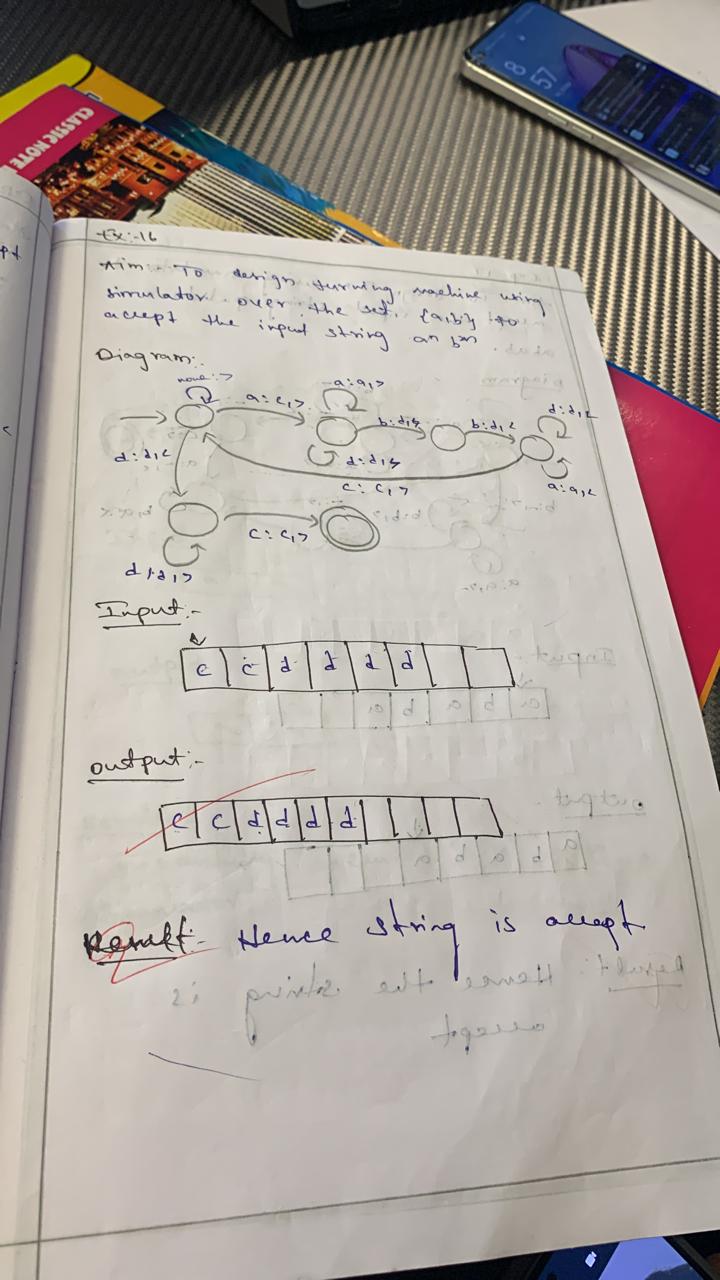 CLASSIC NOTE
8
57
Ex:-16
Aim:- To design turning machine using
simulator over the set {a,b} to
accept the input string an b2n
Diagram:-
a:c,>
a:a,>
b:d,>
b:d,<
d:d,<
d:d,<
d:d,>
c:c,>
a:a,<
c:c,>
d:d,>
Input:-
c c d d d d
output:-
c c d d d d
Result:- Hence string is accept